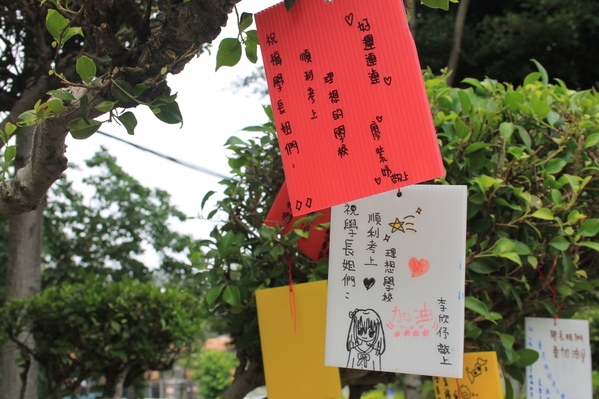 祝福學長姐們:
順利考上
理想的學校
好運連連
敬上
祝學長姐們:
順利考上
理想學校
加油
李欣仔 敬上
加油